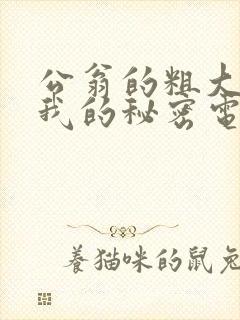 公翁的粗大
我的秘密电
养猫咪的鼠兔